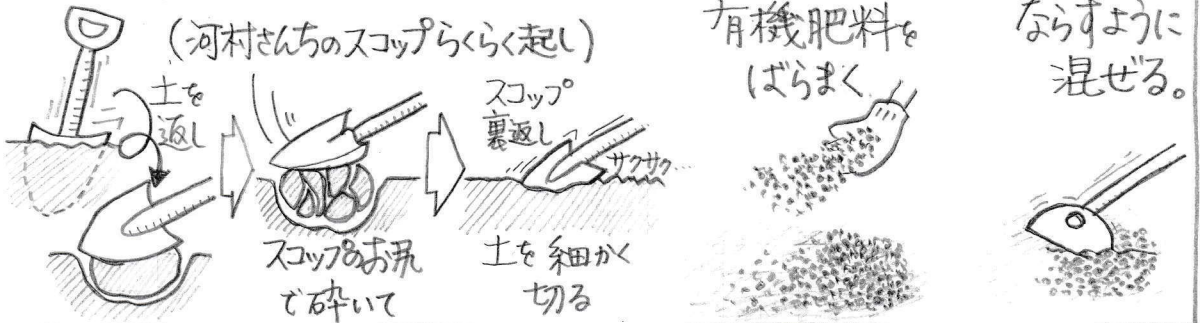 (河村さんちのスコップらくらく起し)
土を
返し
スコップのお尻
で砕いて
スコップ
裏返し
サクサク…
土を細かく
切る
有機肥料を
ばらまく
ならすように
混ぜる。